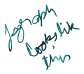 Joseph
looks like
this